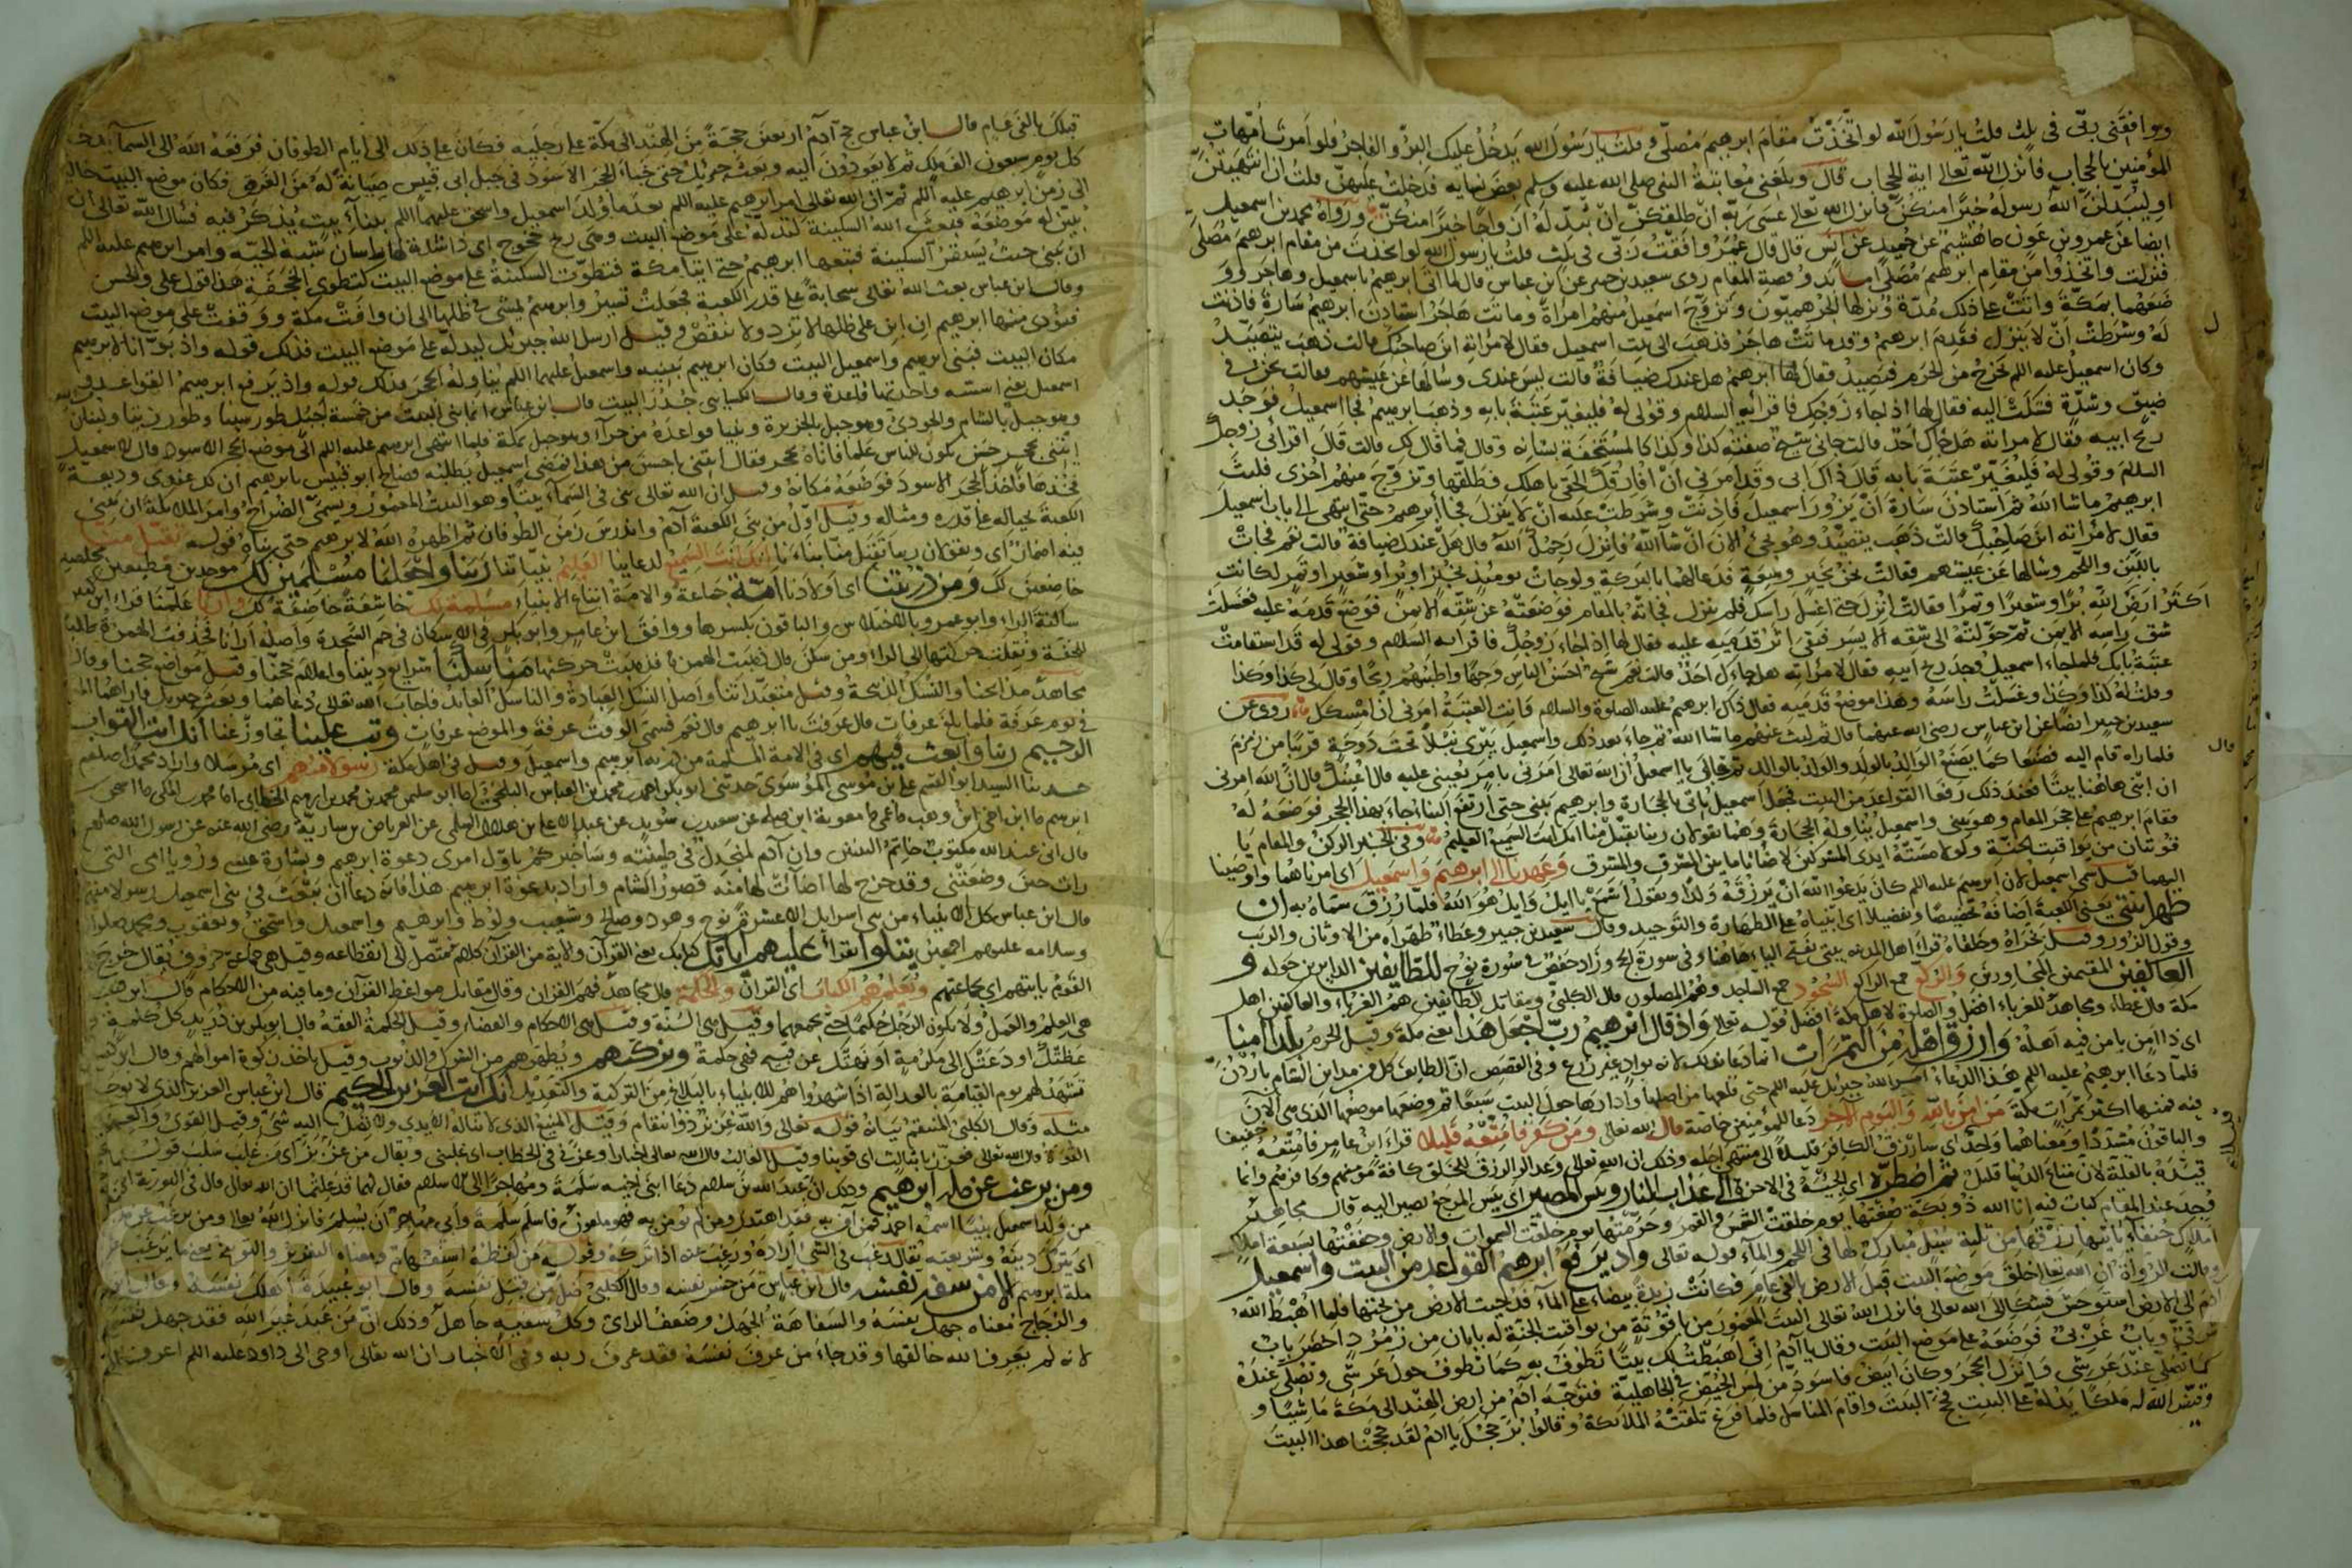 ووافقني ربي في ثلث قلت يا رسول الله لو اتخذت مقام ابرهيم مصلى وقلت يا رسول الله يدخل عليك البر والفاجر فلو امرت امهات
المؤمنين بالحجاب فانزل الله تعالى اية الحجاب قال وبلغني معاتبة النبي صلى الله عليه وسلم بعض نسايه فدخلت عليهن قلت ان انتهيتن
او ليبدلن الله رسوله خيرا منكن فانزل الله تعالى عسى ربه ان طلقكن ان يبدله ازواجا خيرا منكن ورواه محمد بن اسمعيل
ايضا عن عمرو بن عون هشيم عن حميد عن انس قال قال عمر وافقت ربي في ثلث قلت يا رسول الله لو اتخذت من مقام ابرهيم مصلى
فنزلت واتخذوا من مقام ابرهيم مصلى قصة المقام روى سعيد بن جبير عن ابن عباس قال لما اتى ابرهيم باسمعيل وهاجر و
ضعهما بمكة واتت على ذلك مدة ونزلها الجرهميون وتزوج اسمعيل منهم امراة وماتت هاجر استاذن ابرهيم سارة فاذنت
له وشرطت ان لا ينزل فقدم ابرهيم وقد ماتت هاجر فذهب الى بيت اسمعيل فقال لامراته اين صاحبك قالت ذهب يتصيد
وكان اسمعيل عليه اللم يخرج من الحرم فيصيد فقال لها ابرهيم هل عندك ضيافة قالت ليس عندي وسالها عن عيشهم فقالت نحن في
ضيق وشدة فشكت اليه فقال لها اذا جاء زوجك فاقرايه السلام وقولي له فليغير عتبة بابه وذهب ابرهيم فجا اسمعيل فوجد
ريح ابيه فقال لامراته هل جاك احد قالت جاني شيخ صفته كذا وكذا كالمستخفة بشانه وقال فما قال لك قالت قال اقرائي زوجك
السلم وقولي له فليغير عتبة بابه قال ذاك ابي وقد امرني ان افارقك الحقي باهلك فطلقها وتزوج منهم اخرى فلبث
ابرهيم ما شا الله ثم استاذن سارة ان يزور اسمعيل فاذنت وشرطت عليه ان لا ينزل فجا ابرهيم حتى انتهى الى باب اسمعيل
فقال لامراته اين صاحبك قالت ذهب يتصيد وهو يجئ الان ان شا الله فانزل رحمك الله قال هل عندك ضيافة قالت نعم فجات
باللبن واللحم وسالها عن عيشهم فقالت نحن بخير وسعة فدعا لهما بالبركة ولو جات يومئذ بخبز او بر او شعير او تمر لكانت
اكثر ارض الله برا وشعيرا وتمرا فقالت انزل حتى اغسل راسك فلم ينزل فجاته بالمقام فوضعته عن شقه الايمن فوضع قدمه عليه فغسلت
شق راسه الايمن ثم حولته الى شقه الايسر فبقي اثر قدميه عليه فقال لها اذا جاء زوجك فاقرايه السلام وقولي له قد استقامت
عتبة بابك فلما جاء اسمعيل وجد ريح ابيه فقال لامراته هل جاءك احد قالت نعم شيخ احسن الناس وجها واطيبهم ريحا وقال لي كذا وكذا
وقلت له كذا وكذا وغسلت راسه وهذا موضع قدميه فقال ذاك ابرهيم عليه الصلوة والسلام وانت العتبة امرني ان امسكك روي عن
سعيد بن جبير ايضا عن ابن عباس رضي الله عنهما قال ثم لبث عنهم ما شا الله ثم جاء بعد ذلك واسمعيل يبري نبلا تحت دوحة قريبا من زمزم
فلما راه قام اليه فصنعا كما يصنع الوالد بالولد والولد بالوالد ثم قال يا اسمعيل ان الله تعالى امرني بامر تعينني عليه قال اعينك قال ان الله امرني
ان ابني هاهنا بيتا فعند ذلك رفعا القواعد من البيت فجعل اسمعيل ياتي بالحجارة وابرهيم يبني حتى ارتفع البناء جاء بهذا الحجر فوضعه له
فقام ابرهيم على حجر المقام وهو يبني واسمعيل يناوله الحجارة وهما يقولان ربنا تقبل منا انك انت السميع العليم وفي الخبر الركن والمقام يا
قوتتان من يواقيت الجنة ولولا مسته ايدي المشركين لاضاءا ما بين المشرق والمغرب وعهدنا الى ابرهيم واسمعيل اي امرناهما واوصينا
اليهما قيل سمي اسمعيل لان ابرهيم عليه اللم كان يدعوا الله ان يرزقه ولدا ويقول اسمع يا ايل وايل هو الله فلما رزق سماه به ان
طهرا بيتي يعني الكعبة اضافه تخصيصا وتفضيلا اي ابنياه على الطهارة والتوحيد وقال سعيد بن جبير وعطاء طهراه من الاوثان والريب
وقول الزور وقيل بخراه وخلقاه قرأ اهل المدينة بيتي بفتح الياء هاهنا وفي سورة الحج وزاد حفص في سورة نوح للطائفين الدايرين حوله و
العاكفين المقيمين المجاورين والركع جمع الراكع السجود جمع الساجد وهم المصلون قال الكلبي ومقاتل الطائفين هم الغرباء والعاكفين اهل
مكة قال عطاء ومجاهد للغرباء افضل والصلوة لاهل مكة افضل قوله تعالى واذ قال ابرهيم رب اجعل هذا يعني مكة وقيل الحرم بلدا امنا
اي ذا امن يامن فيه اهله وارزق اهله من الثمرات انما دعا بذلك لانه بواد غير ذي زرع وفي القصص ان الطايف كان من مداين الشام باردن
فلما دعا ابرهيم عليه اللم هذا الدعاء امر الله جبرئيل عليه اللم حتى قلعها من اصلها وادارها حول البيت سبعا ثم وضعها موضعها الذي هي الان
فيه فمنها اكثر ثمرات مكة من امن بالله واليوم الاخر دعا للمؤمنين خاصة قال الله تعالى ومن كفر فامتعه قليلا قراء ابن عامر فامتعه خفيفا
والباقون مشددا ومعناهما واحد اي سارزق الكافر قليلا الى منتهى اجله وذلك ان الله تعالى وعد الرزق للخلق كافة مؤمنهم وكافرهم وانما
قيده بالقلة لان متاع الدنيا قليل ثم اضطره اي الجئه في الاخرة الى عذاب النار وبئس المصير اي بئس المرجع يصير اليه قال مجاهد
وجد عند المقام كتاب فيه انا الله ذو بكة صنعتها يوم خلقت الشمس والقمر وحرمتها يوم خلقت السموات والارض وحففتها بسبعة املاك
املاك حنفاء ياتيها رزقها من ثلثة سبل مبارك لها في اللحم والماء قوله تعالى واذ يرفع ابرهيم القواعد من البيت واسمعيل
قالت الرواة ان الله تعالى خلق موضع البيت قبل الارض بالفي عام فكانت زبدة بيضاء على الماء فدحيت الارض من تحتها فلما اهبط الله
ادم الى الارض استوحش فشكا الى الله تعالى فانزل الله تعالى البيت المعمور من ياقوتة من يواقيت الجنة له بابان من زمرد اخضر باب
شرقي وباب غربي فوضعه على موضع البيت وقال يا ادم اني اهبطت لك بيتا تطوف به كما تطوف حول عرشي وتصلي عنده
كما تصلي عند عرشي وانزل الحجر وكان ابيض فاسود من لمس الحيض في الجاهلية فتوجه ادم من ارض الهند الى مكة ماشيا و
وقيض الله له ملكا يدله على البيت فحج البيت واقام المناسك فلما فرغ تلقته الملائكة وقالوا بر حجك يا ادم لقد حججنا هذا البيت
قبلك بالفي عام قال ابن عباس حج آدم اربعين حجة من الهند الى مكة على رجليه فكان على ذلك الى ايام الطوفان فرفعه الله الى السماء
كل يوم سبعون الف ملك ثم لا يعودون اليه وبعث جبرئيل حتى خباء الحجر الاسود في جبل ابي قبيس صيانة له من الغرق فكان موضع البيت خاليا
الى زمن ابرهيم عليه اللم ثم ان الله تعالى امر ابرهيم عليه اللم بعد ما ولد اسمعيل واسحق عليهما اللم ببناء بيت يذكر فيه فسال الله تعالى ان
يبين له موضعه فبعث الله السكينة لتدله على موضع البيت وهي ريح خجوج لها راسان شبه الحية وامر ابرهيم عليه اللم
ان يبني حيث يستقر السكينة فتبعها ابرهيم حتى اتيا مكة فتطوت السكينة على موضع البيت كتطوي الحجفة هذا قول علي والحسن
وقال ابن عباس بعث الله تعالى سحابة على قدر الكعبة فجعلت تسير وابرهيم يمشي في ظلها الى ان وافت مكة ووقفت على موضع البيت
فنودي منها ابرهيم ان ابن على ظلها لا تزد ولا تنقص وقيل ارسل الله جبرئيل ليدله على موضع البيت فذلك قوله واذ بوأنا لابرهيم
مكان البيت فبنى ابرهيم واسمعيل البيت وكان ابرهيم يبنيه واسمعيل عليهما اللم يناوله الحجر فذلك قوله واذ يرفع ابرهيم القواعد
اسمعيل يعني اسسه واحدتها قاعدة وقال الكسايي جدر البيت قال ابن عباس انما بني البيت من خمسة اجبل طور سينا وطور زيتا ولبنان
وهو جبل بالشام والجودي وهو جبل بالجزيرة وبنيا قواعده من حراء وهو جبل بمكة فلما انتهى ابرهيم عليه اللم الى موضع الحجر الاسود قال لاسمعيل
ايتني بحجر حسن يكون للناس علما فاتاه بحجر فقال ايتني باحسن من هذا فمضى اسمعيل يطلبه فصاح ابو قبيس يا ابرهيم ان لك عندي وديعة
فخذها فاخذ الحجر الاسود فوضعه مكانه وقيل ان الله تعالى بنى في السماء بيتا وهو البيت المعمور ويسمى الضراح وامر الملائكة ان يبني
الكعبة بحياله على قدره ومثاله وقيل اول من بنى الكعبة آدم واندرس زمن الطوفان ثم اظهره الله لابرهيم حتى بناه قوله تقبل منا
فيه اضمار اي ويقولان ربنا تقبل منا بناءنا انك انت السميع لدعاينا العليم بنياتنا ربنا واجعلنا مسلمين لك موحدين مطيعين مخلصين
خاضعين لك ومن ذريتنا اي اولادنا امة جماعة والامة اتباع الانبياء مسلمة لك خاشعة خاضعة لك وارنا علمنا قراء ابن كثير
ساكنة الراء وابو عمرو بالاختلاس والباقون بكسرها ووافق ابن عامر وابو بكر في الاسكان في حم السجدة واصله ارانا فحذفت الهمزة طلبا
للخفة ونقلت حركتها الى الراء ومن سكن قال ذهبت الهمزة فذهبت حركتها مناسكنا شرايع ديننا واعلام حجنا وقيل مواضع حجنا وقال
مجاهد مذابحنا والنسك الذبيحة وقيل متعبداتنا واصل النسك العبادة والناسك العابد فاجاب الله تعالى دعاهما وبعث جبريل فاراهما المناسك
في يوم عرفة فلما بلغ عرفات قال عرفت يا ابرهيم قال نعم فسمي الوقت عرفة والموضع عرفات وتب علينا تجاوز عنا انك انت التواب
الرحيم ربنا وابعث فيهم اي في الامة المسلمة من ذرية ابرهيم واسمعيل وقيل في اهل مكة رسولا منهم اي مرسلا واراد محمدا صلعم
حدثنا السيد ابو القسم علي بن موسى الموسوي حدثني ابو بكر احمد بن محمد بن العباس البلخي
قال اني عند الله مكتوب خاتم النبيين وان آدم لمنجدل في طينته وساخبركم باول امري دعوة ابرهيم وبشارة عيسى ورؤيا امي التي
رات حين وضعتني وقد خرج لها اضاءت لها منه قصور الشام واراد بدعوة ابرهيم هذا فانه دعا ان يبعث في بني اسمعيل رسولا منهم
قال ابن عباس كل الانبياء من بني اسرايل الا عشرة نوح وهود وصالح وشعيب ولوط وابرهيم واسمعيل واسحق ويعقوب ومحمد صلوات
وسلامه عليهم اجمعين يتلوا يقرأ عليهم اياتك كتابك يعني القرآن والاية من القرآن كلام متصل الى انقطاعه وقيل هي جماعة حروف يقال خرج
القوم بايتهم اي بجماعتهم ويعلمهم الكتاب اي القرآن والحكمة قال مجاهد فهم القرآن وقال مقاتل مواعظ القرآن وما فيه من الاحكام قال ابن قتيبة
هي العلم والعمل ولا يكون الرجل حكيما حتى يجمعهما وقيل هي السنة وقيل هي الاحكام والقضاء وقيل الحكمة الفقه قال ابو بكر بن دريد كل كلمة
وعظتك او دعتك الى مكرمة او نهتك عن قبيح فهي حكمة ويزكيهم ويطهرهم من الشرك والذنوب وقيل ياخذ زكوة اموالهم وقال ابن كيسان
يشهد لهم يوم القيامة بالعدالة اذا شهدوا هم للانبياء بالبلاغ من التزكية والتعديل انك انت العزيز الحكيم قال ابن عباس العزيز الذي لا يوجد
مثله وقال الكلبي المنتقم بيانه قوله تعالى والله عزيز ذو انتقام وقيل المنيع الذي لا تناله الايدي ولا يصل اليه شئ وقيل القوي والعزة
القوة قال الله تعالى فعززنا بثالث اي قوينا وقيل الغالب قال الله تعالى اخبارا وعزني في الخطاب اي غلبني ويقال من عز بز اي من غلب سلب قوله
ومن يرغب عن ملة ابرهيم وذلك ان عبد الله بن سلام دعا ابني اخيه سلمة ومهاجرا الى الاسلام فقال لهما قد علمتما ان الله تعالى قال في التورية اني باعث
من ولد اسمعيل نبيا اسمه احمد فمن آمن به فقد اهتدى ومن لم يؤمن به فهو ملعون فاسلم سلمة وابى مهاجر ان يسلم فانزل الله تعالى ومن يرغب عن ملة
اي يترك دينه وشريعته يقال رغب في الشئ اذا اراده ورغب عنه اذا تركه وقوله من لفظه استفهام ومعناه التقريع والتوبيخ يعني ما يرغب عن
ملة ابرهيم الا من سفه نفسه قال ابن عباس من خسر نفسه وقال الكلبي ضل من قبل نفسه وقال ابو عبيدة اهلك نفسه وقال ابن
والزجاج معناه جهل نفسه والسفاهة الجهل وضعف الراي وكل سفيه جاهل وذلك ان من عبد غير الله فقد جهل نفسه
لانه لم يعرف الله خالقها وقد جاء من عرف نفسه فقد عرف ربه وفي الاخبار ان الله تعالى اوحى الى داود عليه اللم اعرف نفسك